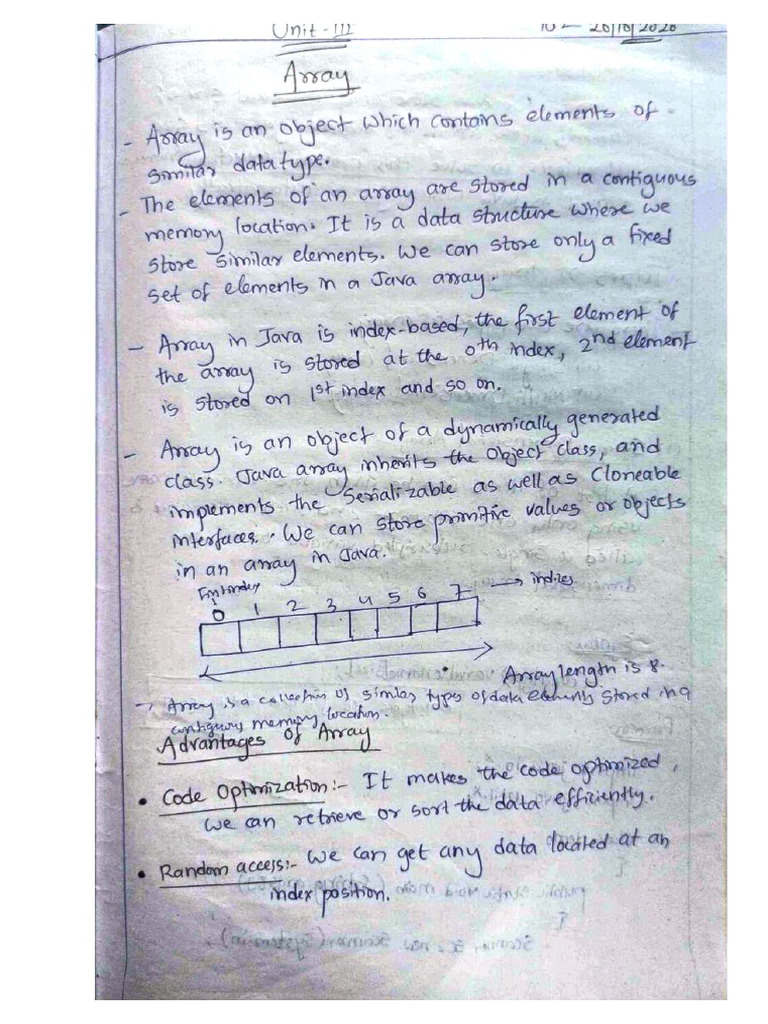 Unit - III
20/10/2020
Array
- Array is an object which contains elements of
similar datatype.
- The elements of an array are stored in a contiguous
memory location. It is a data structure where we
store similar elements. We can store only a fixed
set of elements in a Java array.
- Array in Java is index-based, the first element of
the array is stored at the 0th index, 2nd element
is stored on 1st index and so on.
- Array is an object of a dynamically generated
class. Java array inherits the Object class, and
implements the Serializable as well as Cloneable
interfaces. We can store primitive values or objects
in an array in Java.
First index
0 1 2 3 4 5 6 7 → indices
Array length is 8.
→ Array is a collection of similar types of data stored in a
contiguous memory location.
Advantages of Array
• Code Optimization:- It makes the code optimized,
we can retrieve or sort the data efficiently.
• Random access:- We can get any data located at an
index position.